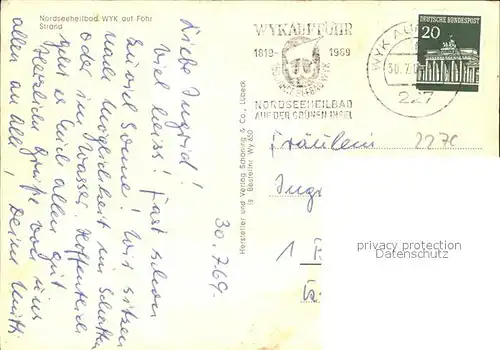 Nordseeheilbad WYK auf Föhr
Strand
30.7.69.
Liebe Ingrid!
Viel heiss! Fast schon
zuviel Sonne! Wir sitzen
nach Möglichkeit im Schatten
oder im Wasser. Hoffentlich
geht es Euch allen gut
Herzliche Grüße von uns
allen an alle, Deine Mutti
Hersteller und Verlag Schöning & Co., Lübeck
Bestellnr. Wy 650
WYK AUF FÖHR
1819- -1969
NORDSEEHEILBAD
AUF DER GRÜNEN INSEL
WYK AUF
30.7.
227
DEUTSCHE BUNDESPOST
20
Fräulein
2270
Ingr
1
privacy protection
Wyk